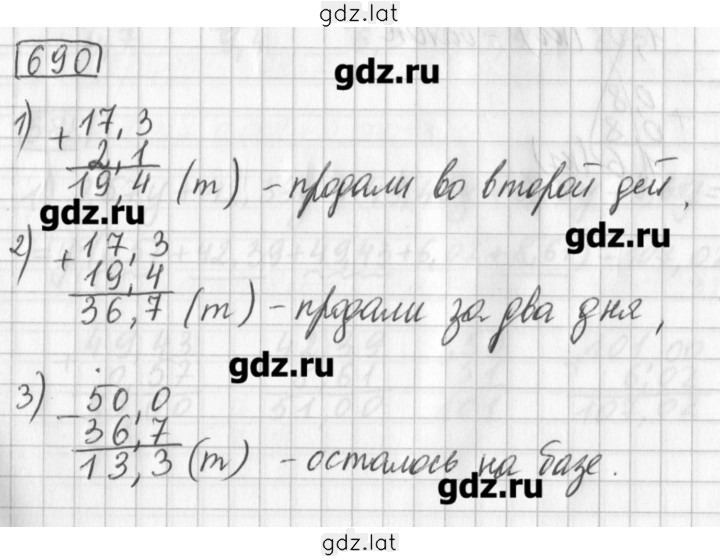 gdz.lat
690
gdz.ru
1) + 17,3
2,1
19,4 (т) - продали во второй дей,
gdz.ru
gdz.ru
2) + 17,3
19,4
36,7 (т) - продали за два дня,
gdz.ru
3) - 50,0
36,7
13,3 (т) - осталось на базе.
gdz.ru
gdz.lat